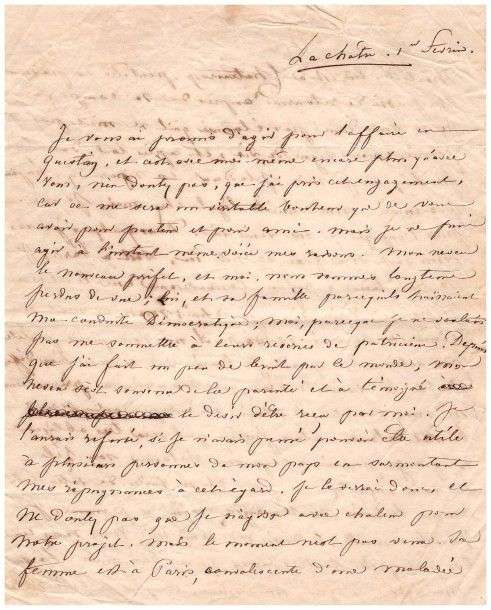 La châtre. 1er Février.
Je vous ai promis d'agir pour l'affaire en
question, et c'est avec moi même encore plus qu'avec
vous, n'en doutez pas, que j'ai pris cet engagement,
car ce me sera un véritable bonheur que de vous
avoir pour et pour ami. Mais je ne puis
agir à l'instant même, voici mes raisons. Mon neveu
le nouveau préfet, et moi, nous sommes longtems
perdus de vue, lui, et sa famille parcequ'ils haissaient
ma conduite Démocratique, moi, parceque je ne voulais
pas me soumettre à leurs de patriciens. Depuis
que j'ai fait un peu de bruit par le monde, mon
neveu s'est souvenu de la parenté et a témoigné
le desir d'être reçu par moi. Je
l'aurais refusé si je n'avais pensé pouvoir être utile
à plusieurs personnes de mon pays en surmontant
mes répugnances à cet égard. Je le verrai donc, et
ne doutez pas que je n'agisse avec chaleur pour
notre projet. Mais le moment n'est pas venu. Sa
femme est à Paris, convalescente d'une maladie